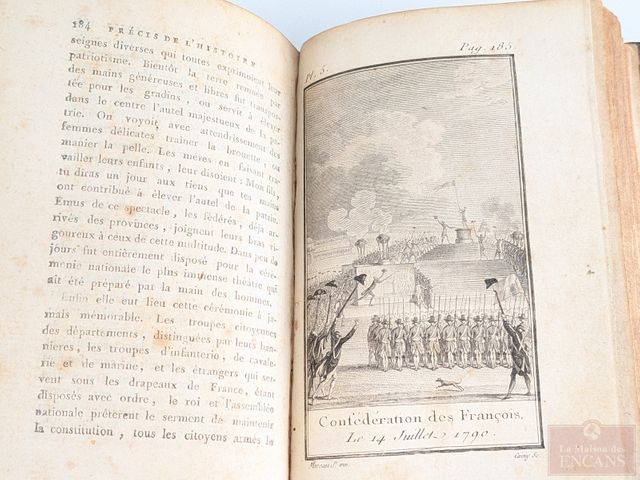 184 PRÉCIS DE L'HISTOIRE
seignes diverses qui toutes exprimoient leur
patriotisme. Bientôt la terre remuée par
des mains généreuses et libres fut transpor-
tée pour les gradins, ou servit à élever
dans le centre l'autel majestueux de la pa-
trie. On voyoit, avec attendrissement des
femmes délicates trainer la brouette, ou
manier la pelle. Les meres en faisant tra-
vailler leurs enfants, leur disoient: Mon fils,
tu diras un jour aux tiens que tes mains
ont contribué à élever l'autel de la patrie.
Emus de ce spectacle, les fédérés, déja ar-
rivés des provinces, joignent leurs bras vi-
goureux à ceux de cette multitude. Dans peu de
jours fut entièrement disposé pour la céré-
monie nationale le plus immense théâtre qui
ait été préparé par la main des hommes.
Enfin elle eut lieu cette cérémonie à ja-
mais mémorable. Les troupes citoyennes
des départements, distinguées par leurs ban-
nieres, les troupes d'infanterie, de cavale-
rie et de marine, et les étrangers qui ser-
vent sous les drapeaux de France, étant
disposés avec ordre, le roi et l'assemblée
nationale prêterent le serment de maintenir
la constitution, tous les citoyens armés le
Pl. 5. Pag. 185.
Confédération des François,
Le 14 Juillet, 1790.
La Maison des
ENCANS